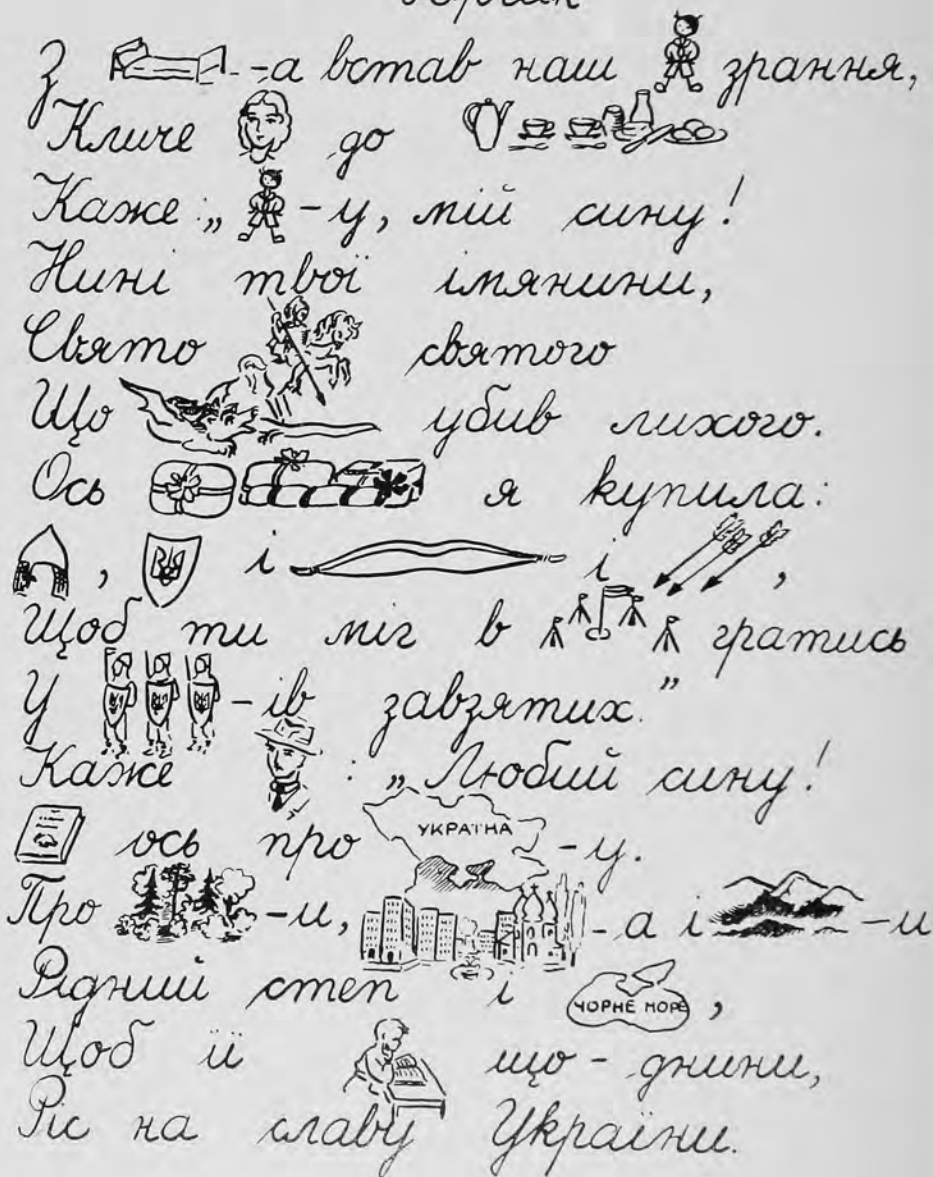 З -а встав наш зрання,
Кличе до
Каже: „ -у, мій сину!
Нині твої імянини,
Свято святого
Що убив лихого.
Ось я купила:
, і і ,
Щоб ти міг в гратись
У -ів завзятих.”
Каже : „Любий сину!
УКРАЇНА
ось про -у.
Про -и, -а і -и
Рідний степ і ЧОРНЕ МОРЕ ,
Щоб її що-днини,
Ріс на славу України.